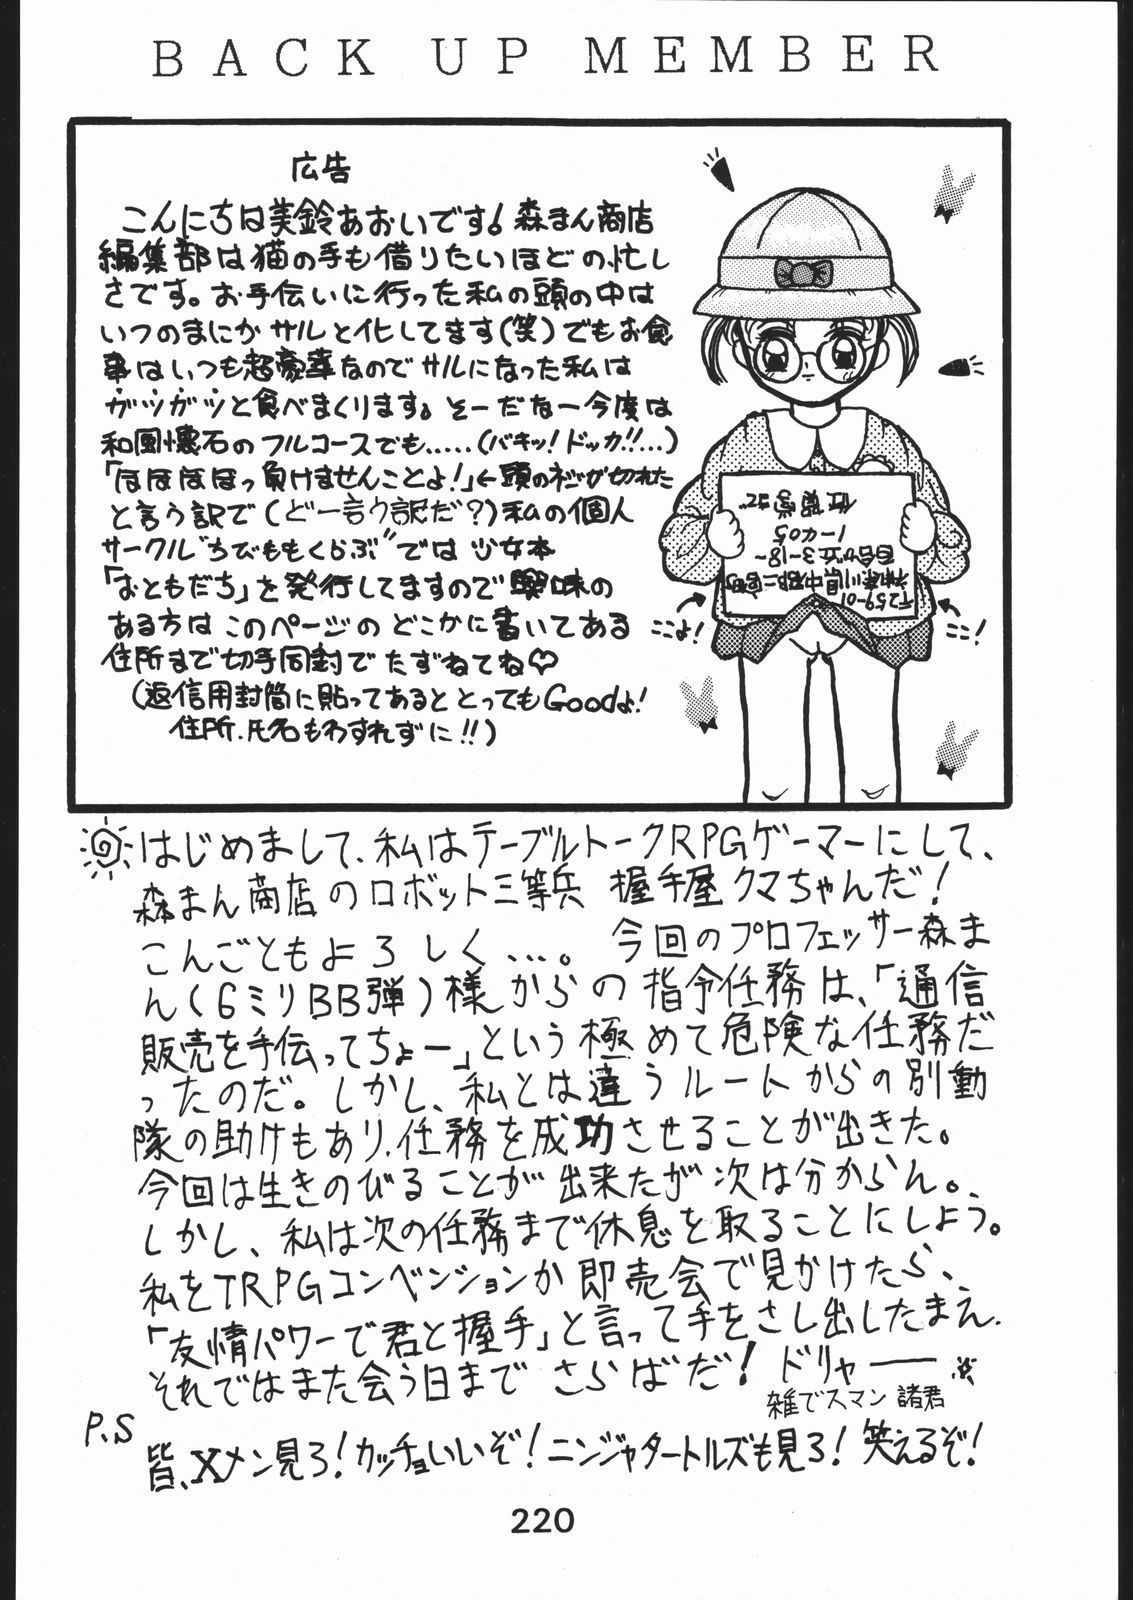 BACK UP MEMBER
広告
こんにちは美鈴あおいです!森まん商店
編集部は猫の手も借りたいほどの忙し
さです。お手伝いに行った私の頭の中は
いつのまにかサルと化してます(笑)でもお食
事はいつも超豪華なのでサルになった私は
ガツガツと食べまくります。そーだなー今度は
和風懐石のフルコースでも……(バキッ!ドッカ!!…)
「ほほほほっ負けませんことよ!」←頭のネジが切れた
と言う訳で(どー言う訳だ?)私の個人
サークル"ちびももくらぶ"では少女本
「おともだち」を発行してますので興味の
ある方はこのページのどこかに書いてある
住所まで切手同封でたずねてね♡
(返信用封筒に貼ってあるととってもGoodよ!
住所.氏名もわすれずに!!)
ここよ!
ここ!
はじめまして、私はテーブルトークRPGゲーマーにして、
森まん商店のロボット三等兵 握手屋クマちゃんだ!
こんごともよろしく…。 今回のプロフェッサー森ま
ん(6ミリBB弾)様からの指令任務は、「通信
販売を手伝ってちょー」という極めて危険な任務だ
ったのだ。しかし、私とは違うルートからの別動
隊の助けもあり、任務を成功させることが出きた。
今回は生きのびることが出来たが次は分からん。
しかし、私は次の任務まで休息を取ることにしよう。
私をTRPGコンベンションか即売会で見かけたら、
「友情パワーで君と握手」と言って手をさし出したまえ.
それではまた会う日まで さらばだ! ドリャー
雑でスマン 諸君
P.S
皆、Xメン見ろ!カッチョいいぞ!ニンジャタートルズも見ろ!笑えるぞ!
220